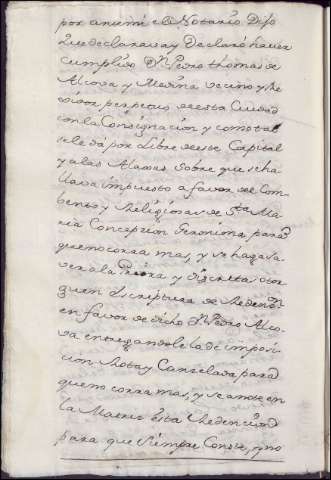 por antemi el Notario Dijo
que declaraba y declaró haver
cumplido Dn Pedro thomas de
Alcova y Marina vecino y Re
xidor perpetuo de esta Ciudad
con la Consignacion y como tal
se le dá por libre de este Capital
y a las Alajas sobre que se ha
llava impuesto a favor del Com
bento y Religiosas de Sta Ma
ria Concepcion Geronima para
que no corra mas, y se haga sa
ver a la Priora y Discretas otor
guen Escriptura de Reden
en favor de dicho Dn Pedro Alco
va entregandole la de imposi
cion Rota y Canzelada para
que no corra mas, y se anote en
la Matriz esta Redencion
para que siempre Conste, y no